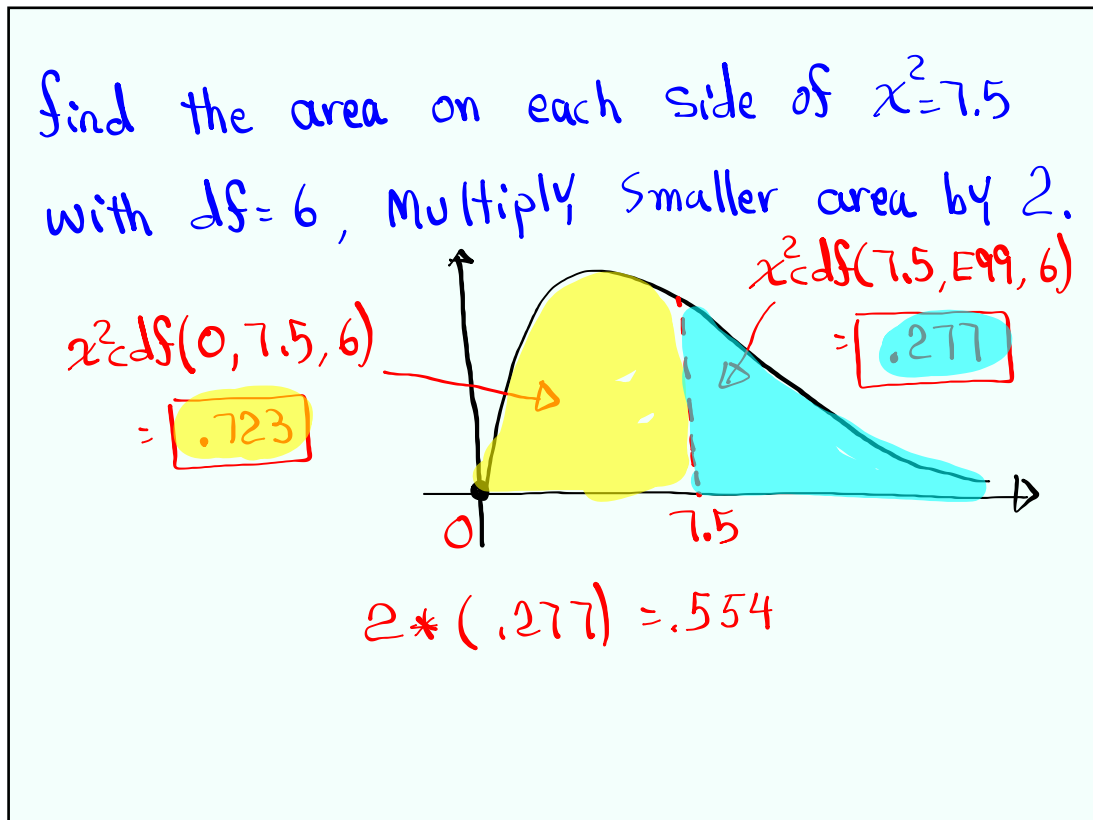 find the area on each side of χ²=7.5
with df=6, Multiply Smaller area by 2.
χ²cdf(7.5,E99,6)
= .277
χ²cdf(0,7.5,6)
= .723
0
7.5
2*(.277)=.554